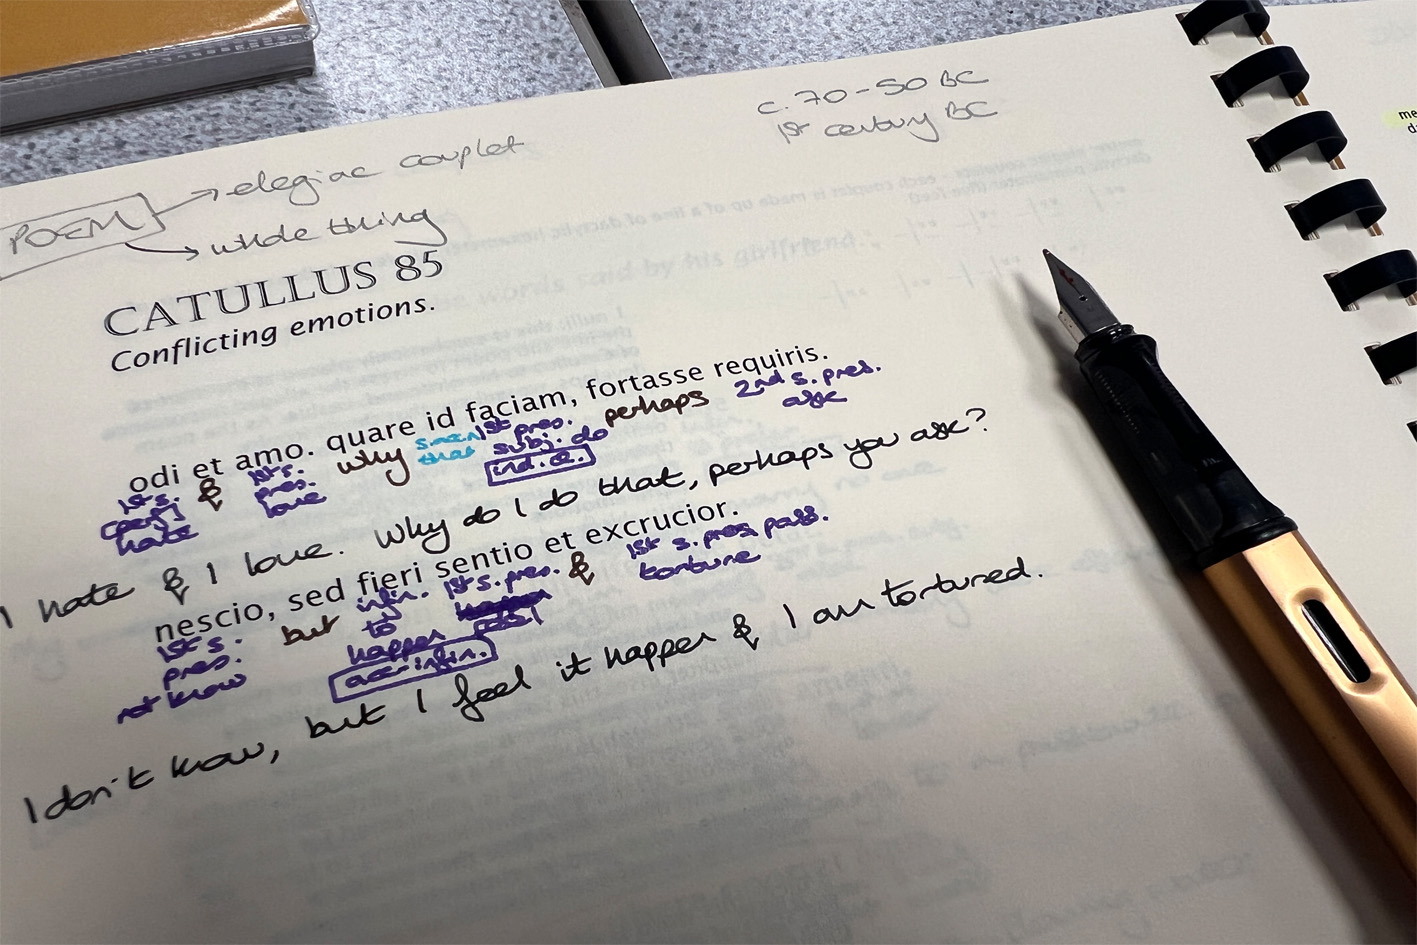 c. 70-50 BC
1st century BC
POEM → elegiac couplet
→ whole thing
CATULLUS 85
Conflicting emotions.
odi et amo. quare id faciam, fortasse requiris.
1st s. & 1st s. why that 1st pres. perhaps 2nd s. pres.
pres. subj. do ask
hate love ind. q.
I hate & I love. Why do I do that, perhaps you ask?
nescio, sed fieri sentio et excrucior.
1st s. but infin. 1st s. pres. & 1st s. pres. pass.
pres. to feel torture
not know happen
acc. infin.
I don't know, but I feel it happen & I am tortured.
words said by his girlfriend.